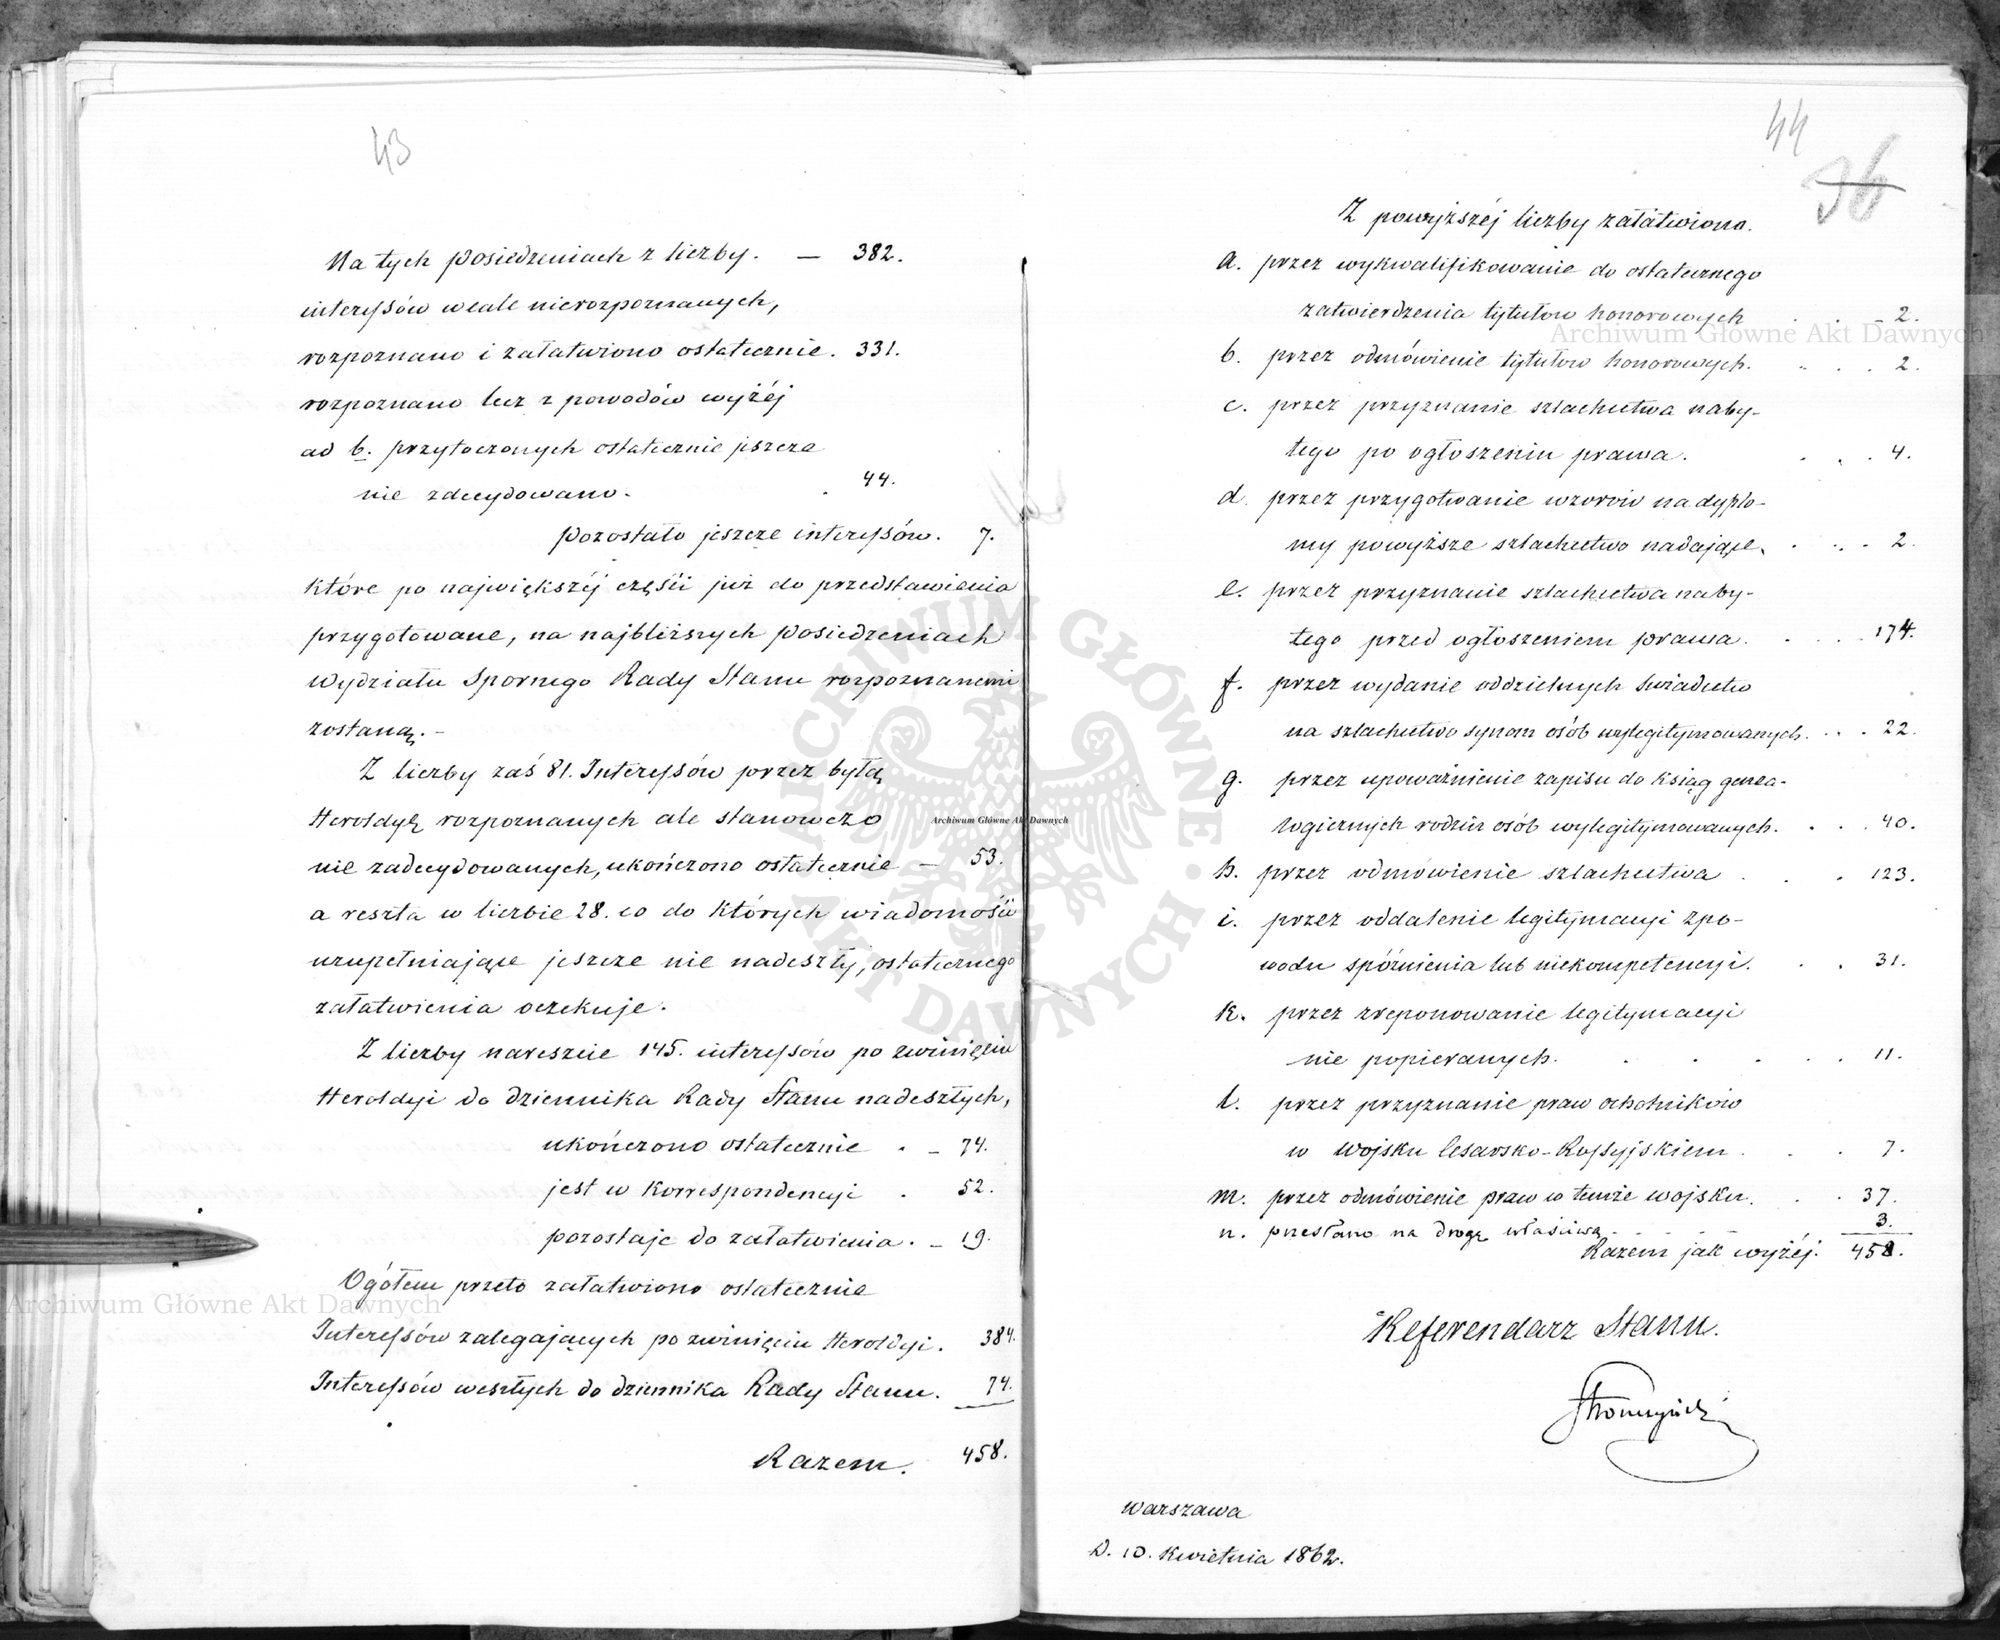 43
Na tych posiedzeniach z liczby. — 382.
interessów wcale nierozpoznanych,
rozpoznano i załatwiono ostatecznie. 331.
rozpoznano lecz z powodów wyżéj
ad b. przytoczonych ostatecznie jeszcze
nie zdecydowano. . 44.
Pozostało jeszcze interessów. 7.
które po największéj części już do przedstawienia
przygotowane, na najbliższych posiedzeniach
Wydziału Spornego Rady Stanu rozpoznanemi
zostaną. –
Z liczby zaś 81. Interessów przez byłą
Heroldyą rozpoznanych ale stanowczo
nie zadecydowanych, ukończono ostatecznie — 53.
a reszta w liczbie 28. co do których wiadomości
uzupełniające jeszcze nie nadeszły, ostatecznego
załatwienia oczekuje.
Z liczby nareszcie 145. interessów po zwinięciu
Heroldyi do dziennika Rady Stanu nadeszłych,
ukończono ostatecznie . – 74.
jest w korrespondencyi . 52.
pozostaje do załatwienia. – 19.
Ogółem przeto załatwiono ostatecznie
Interessów zalegających po zwinięciu Heroldyi. 384.
Interessów weszłych do dziennika Rady Stanu. 74.
Razem. 458.
44
36
Z powyższéj liczby załatwiono.
a. przez wykwalifikowanie do ostatecznego
zatwierdzenia tytułów honorowych . . – 2.
b. przez odmówienie tytułów honorowych. . . . 2.
c. przez przyznanie szlachectwa naby-
tego po ogłoszeniu prawa. . . . 4.
d. przez przygotowanie wzorów na dyplo-
my powyższe szlachectwo nadające. . . . 2.
e. przez przyznanie szlachectwa naby-
tego przed ogłoszeniem prawa. . . . 174.
f. przez wydanie oddzielnych świadectw
na szlachectwo synom osób wylegitymowanych. . . . 22.
g. przez upoważnienie zapisu do ksiąg genea-
logicznych rodzin osób wylegitymowanych. . . . 40.
h. przez odmówienie szlachectwa . . . 123.
i. przez oddalenie legitymacyi z po-
wodu spóźnienia lub niekompetencyi. . . 31.
k. przez zreponowanie legitymacyi
nie popieranych. . . . . . 11.
l. przez przyznanie praw ochotników
w Wojsku Cesarsko-Rossyjskiem . . . 7.
m. przez odmówienie praw w temże wojsku. . . 37.
n. przesłano na drogę właściwą . . . . 3.
Razem jak wyżéj. 458.
Referendarz Stanu.
Stronczyński
Warszawa
D. 10. Kwietnia 1862.
Archiwum Główne Akt Dawnych
Archiwum Główne Akt Dawnych
Archiwum Główne Akt Dawnych
ARCHIWUM GŁÓWNE · AKT DAWNYCH ·